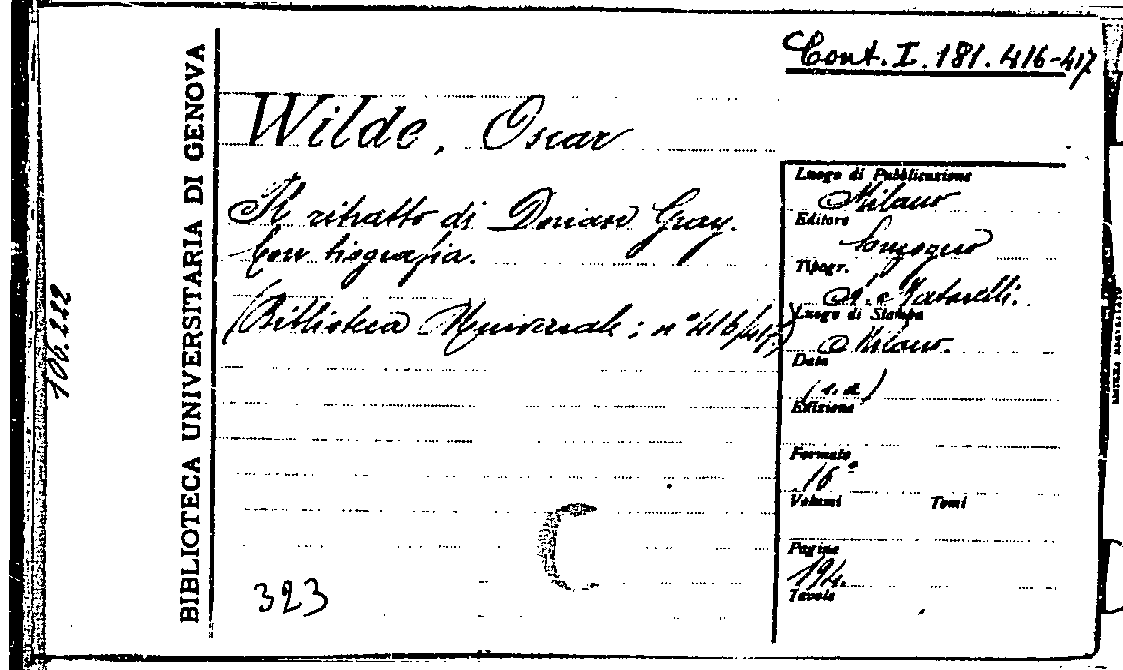 Cont. I. 181. 416-417
BIBLIOTECA UNIVERSITARIA DI GENOVA
106.222
Wilde, Oscar
Il ritratto di Dorian Gray.
Con biografia.
(Biblioteca Universale; n° 416/417)
323
Luogo di Pubblicazione
Milano
Editore
Sonzogno
Tipogr.
A. Matarelli.
Luogo di Stampa
Milano.
Data
(s.d.)
Edizione
Formato
16°
Volumi Tomi
Pagine
194.
Tavole